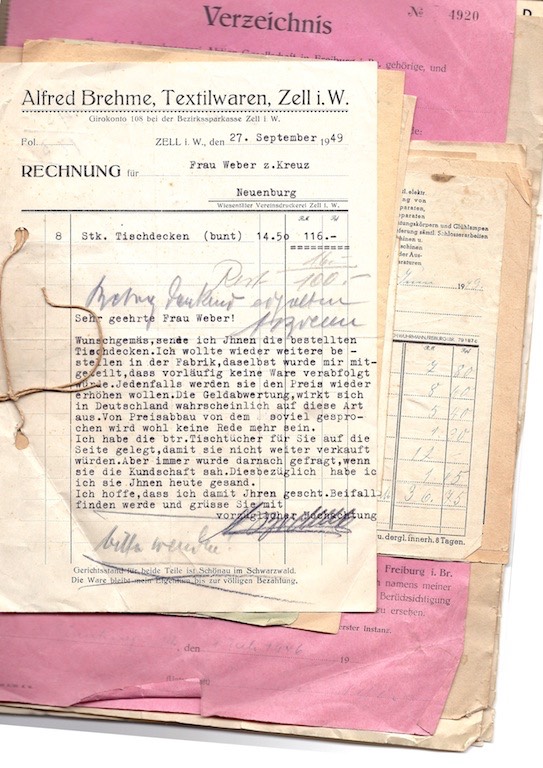 Verzeichnis
№ 4920
Alfred Brehme, Textilwaren, Zell i. W.
Girokonto 108 bei der Bezirkssparkasse Zell i. W.
Fol.
ZELL i. W., den 27. September 1949
RECHNUNG für Frau Weber z.Kreuz
Neuenburg
Wiesentäler Vereinsdruckerei Zell i. W.
8 Stk. Tischdecken (bunt) 14.50 116.-
16.-
Rest 100.-
Betrag dankend erhalten
Sehr geehrte Frau Weber!
Wunschgemäs,sende ich Jhnen die bestellten
Tischdecken.Ich wollte wieder weitere be -
stellen in der Fabrik,daselbst wurde mir mit-
geteilt,dass vorläufig keine Ware verabfolgt
würde.Jedenfalls werden sie den Preis wieder
erhöhen wollen.Die Geldabwertung,wirkt sich
in Deutschland wahrscheinlich auf diese Art
aus.Von Preisabbau von dem soviel gespro-
chen wird wohl keine Rede mehr sein.
Ich habe die btr.Tischtücher für Sie auf die
Seite gelegt,damit sie nicht weiter verkauft
würden.Aber immer wurde darnach gefragt,wenn
sie die Kundschaft sah.Diesbezüglich habe ic
ich sie Jhnen heute gesand.
Ich hoffe,dass ich damit Jhren gescht.Beifall
finden werde und grüsse Sie mit
vorzüglicher Hochachtung
bitte wenden
Gerichtsstand für beide Teile ist Schönau im Schwarzwald.
Die Ware bleibt mein Eigentum bis zur völligen Bezahlung.
gehörige, und
l. elektr.
ng von
paraten,
pparate
tungskörpern und Glühlampen
derung sämtl. Schlosserarbeiten
chinen u.
aschinen
der Aus-
eraturen
u. dergl. innerh. 8 Tagen.
Freiburg i. Br.
namens meiner
Berücksichtigung
zu ersehen.
erster Instanz.
, den
19